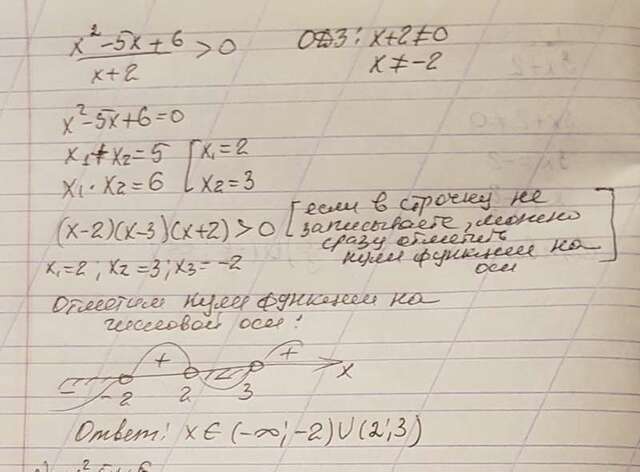 x²-5x+6/x+2 > 0 ОДЗ: x+2≠0
x≠-2
x²-5x+6=0
x₁+x₂=5 [x₁=2
x₁·x₂=6 [x₂=3
(x-2)(x-3)(x+2)>0 [если в строчку не
записываете, можно
сразу отметить
нули функции на
оси]
x₁=2; x₂=3; x₃=-2
Отметим нули функции на
числовой оси:
- + - + x
-2 2 3
Ответ: x∈(-∞;-2)∪(2;3)